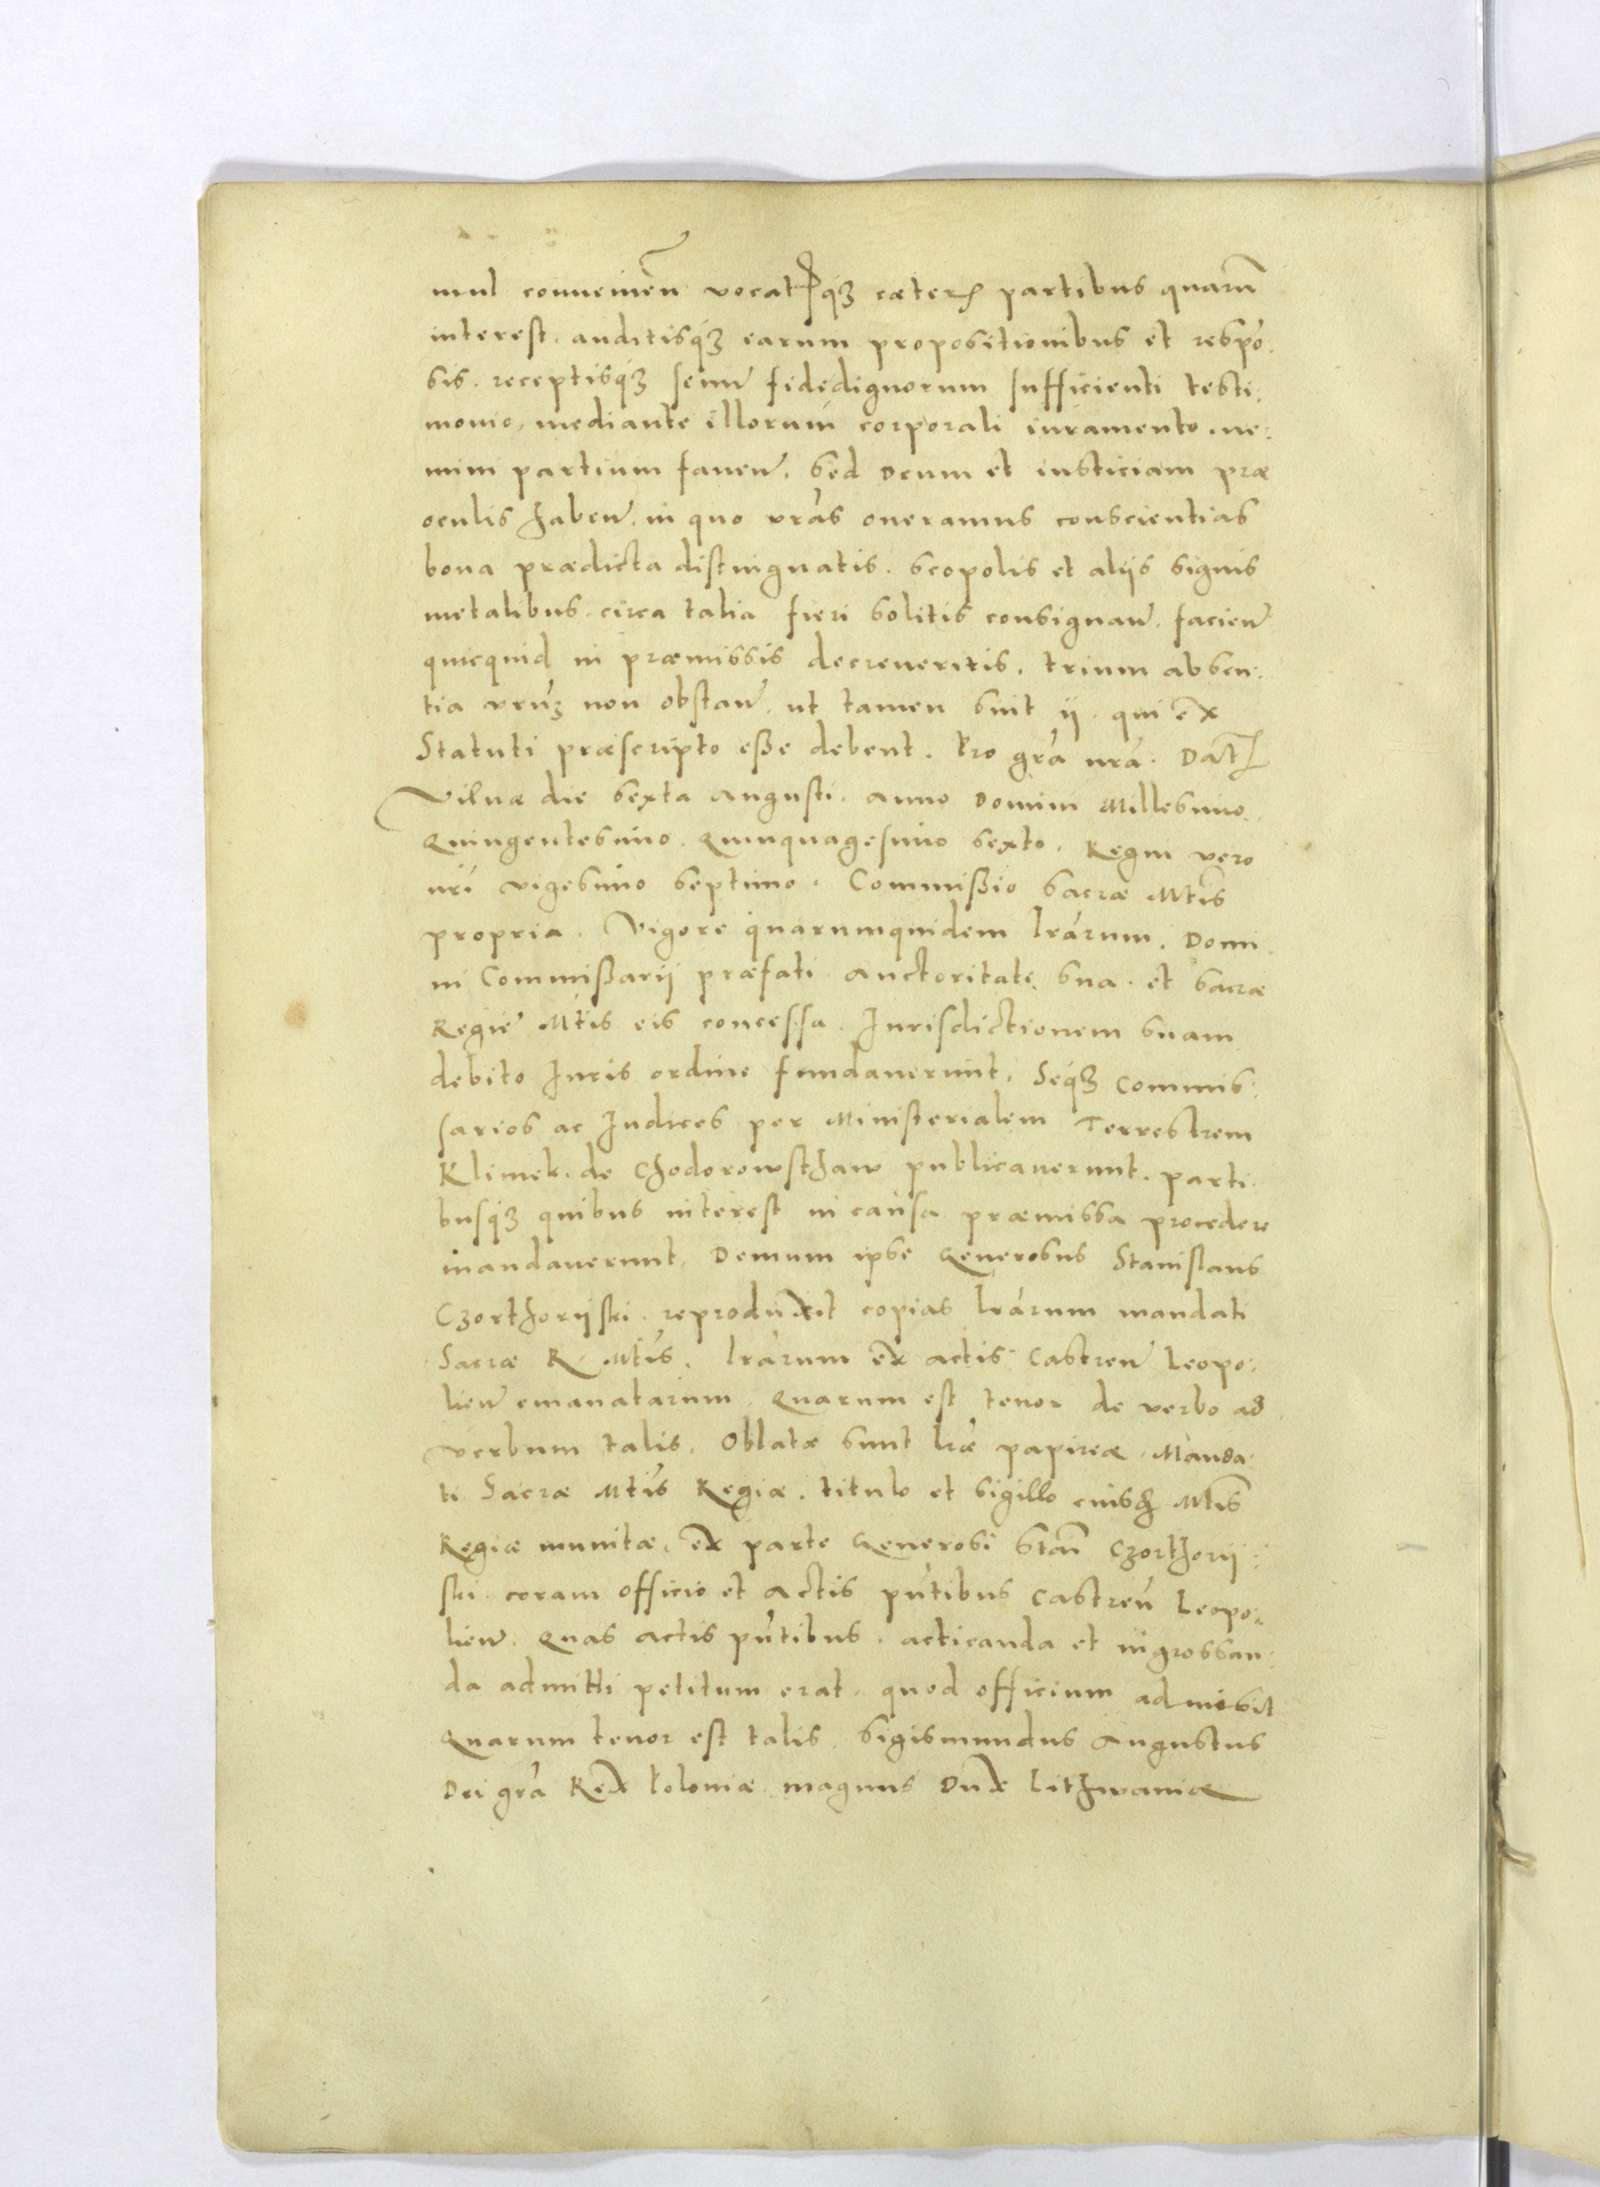 mul conuenien̄ vocat̄qꝫ cæteris partibus quarū
interest. auditisqꝫ earum propositionibus et respō
sis. receptisqꝫ seniū fidedignorum sufficienti testi.
monio, mediante illorum corporali iuramento. ne:
mini partium fauen̄. sed Deum et iusticiam præ
oculis haben̄. in quo vrās oneramus conscientias
bona prædicta distinguatis. scopolis et aliis signis
metalibus. circa talia fieri solitis consignan̄. facien̄
quicquid in præmissis decreueritis. trium absen:
tia vrūꝫ non obstan̄. ut tamen sint ij. qui ex
Statuti præscripto esse debent. Pro grā nrā. Dat̄
Vilnæ die sexta Augusti. Anno Domini Millesimo
Quingentesimo. Quinquagesimo sexto. Regni vero
nrī vigesimo septimo. Commissio sacræ Mtīs
propria. Vigore quarumquidem lrārum. Domi.
ni Commissarii præfati Auctoritate sua. et sacræ
Regiē Mtīs eis concessa. Jurisdictionem suam
debito Juris ordine fundauerunt. Seqꝫ Commis:
sarios ac Judices per Ministerialem Terrestrem
Klimek. de Chodorowsthaw publicauerunt. parti.
busqꝫ quibus interest in causa præmissa procedere
mandauerunt. Demum ipse Generosus Stanislaus
Czorthoryiski. reproduxit copias lrārum mandati
Sacræ R. Mtīs. lrārum ex actis Castren̄ Leopo.
lien̄ emanatarum. Quarum est tenor de verbo ad
verbum talis. Oblatæ sunt lrǣ papireæ. Manda.
ti Sacræ Mtīs Regiæ. titulo et sigillo eiusdꝫ Mtīs
Regiæ munitæ. ex parte Generosi Stanī Czorthoryi:
ski. coram officio et Actis pn̄tibus Castren̄ Leopo.
lien̄. Quas Actis pn̄tibus. acticanda et ingrossan:
da admitti petitum erat. quod officium admisit
Quarum tenor est talis. Sigismundus Augustus
Dei grā Rex Poloniæ magnus Dux Lithwaniæ